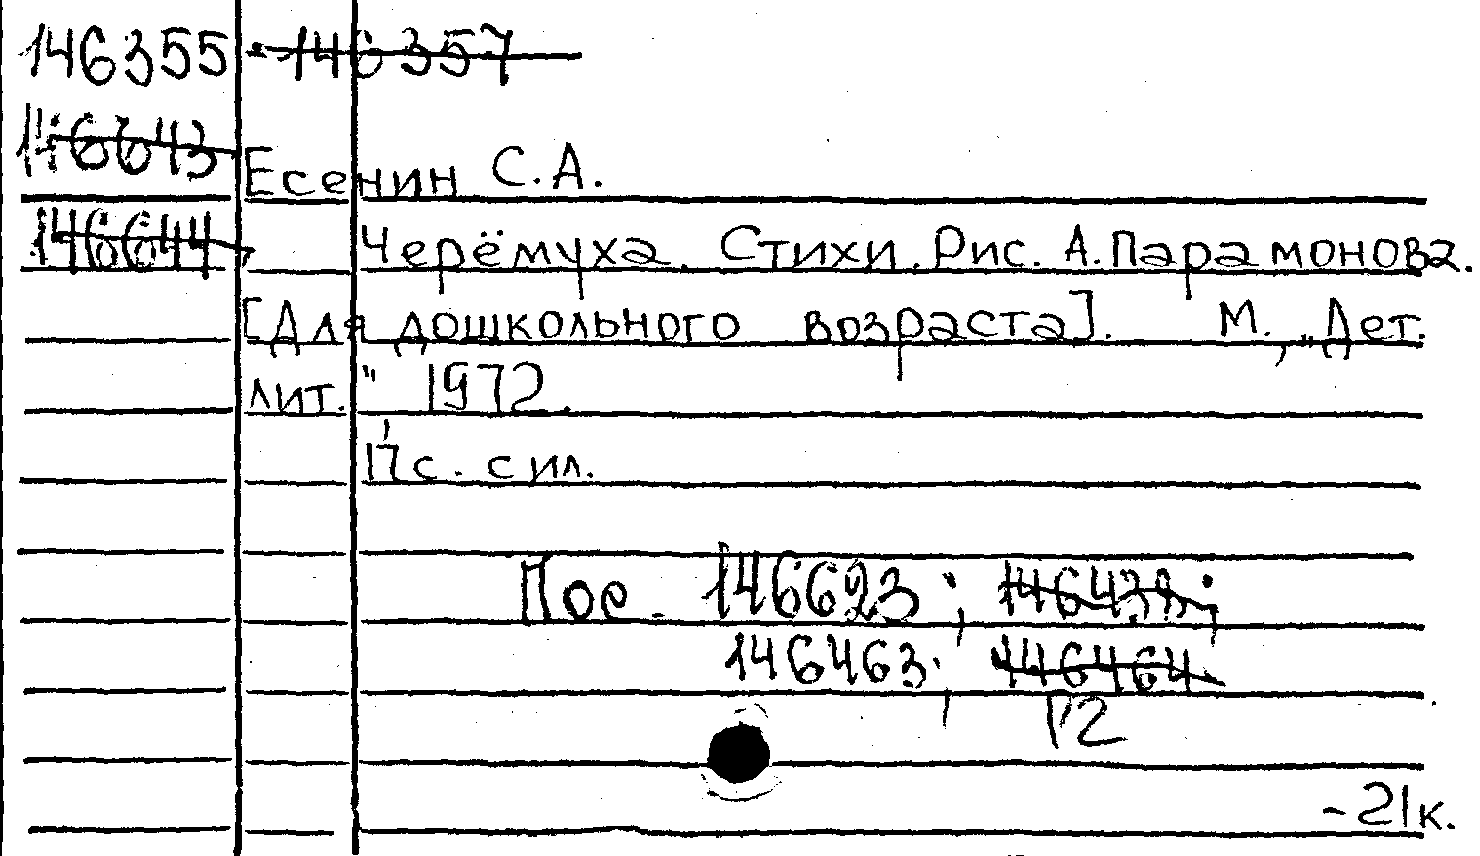 146355 - 146357
146643
Есенин С.А.
146644
Черёмуха. Стихи. Рис. А. Парамонова.
[Для дошкольного возраста]. М., „Дет.
лит." 1972.
17с. с ил.
Пос. 146623; 146438;
146463; 146464
172
- 21к.